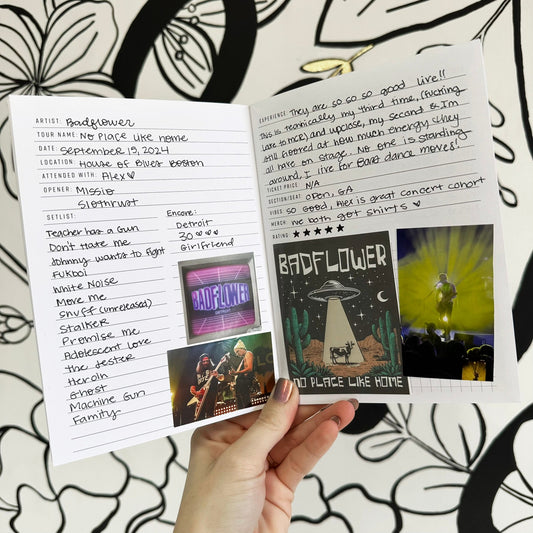 ARTIST: Badflower
TOUR NAME: NO PLACE LIKE HOME
DATE: September 19, 2024
LOCATION: HOUSE OF BLUES BOSTON
ATTENDED WITH: Alex♡
OPENER: Missio
Slothrust
SETLIST:
Teacher has a Gun
Don't Hate Me
Johnny wants to Fight
Fukboi
White Noise
Move Me
Snuff (unreleased)
Stalker
Promise Me
Adolescent Love
The Jester
Heroin
Ghost
Machine Gun
Family
Encore:
Detroit
30 ♡♡♡
Girlfriend
BADFLOWER
EXPERIENCE: They are so so so good live!!
This is technically my third time, (fucking
late to MCR) and upclose, my second & I'm
still floored at how much energy they
all have on stage. No one is standing
around, I live for Bass dance moves!
TICKET PRICE: N/A
SECTION/SEAT: Open, GA
VIBES: so Good, Alex is great concert cohort
MERCH: we both got shirts ♡
RATING: ★★★★★
BADFLOWER
NO PLACE LIKE HOME